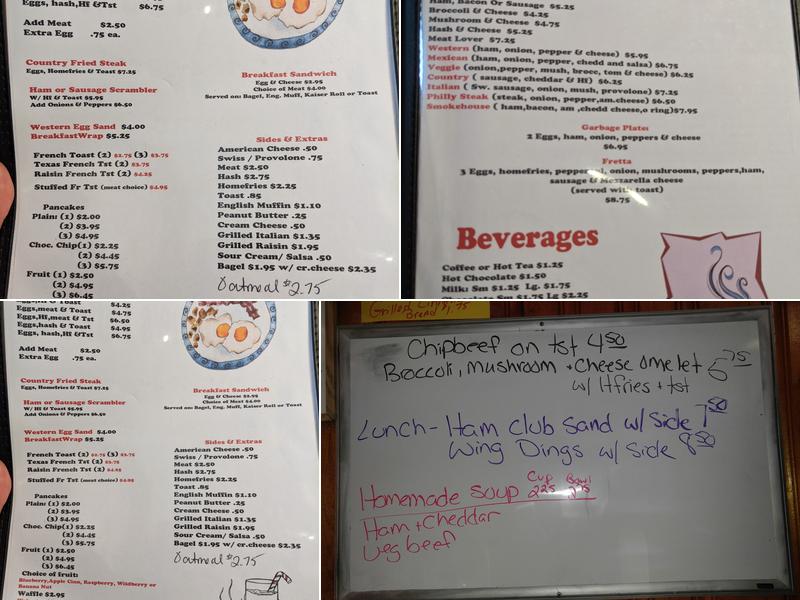 Eggs, hash,Hf &Tst $6.75
Add Meat $2.50
Extra Egg .75 ea.
Country Fried Steak
Eggs, Homefries & Toast $7.25
Ham or Sausage Scrambler
W/ Hf & Toast $5.95
Add Onions & Peppers $6.50
Western Egg Sand $4.00
BreakfastWrap $5.25
French Toast (2) $2.75 (3) $3.75
Texas French Tst (2) $3.75
Raisin French Tst (2) $4.25
Stuffed Fr Tst (meat choice) $4.95
Pancakes
Plain: (1) $2.00
(2) $3.95
(3) $4.95
Choc. Chip(1) $2.25
(2) $4.45
(3) $5.75
Fruit (1) $2.50
(2) $4.95
(3) $6.45
Breakfast Sandwich
Egg & Cheese $2.95
Choice of Meat $4.00
Served on: Bagel, Eng. Muff, Kaiser Roll or Toast
Sides & Extras
American Cheese .50
Swiss / Provolone .75
Meat $2.50
Hash $2.75
Homefries $2.25
Toast .85
English Muffin $1.10
Peanut Butter .25
Cream Cheese .50
Grilled Italian $1.35
Grilled Raisin $1.95
Sour Cream/ Salsa .50
Bagel $1.95 w/ cr.cheese $2.35
Oatmeal $2.75
Ham, Bacon Or Sausage $5.25
Broccoli & Cheese $4.25
Mushroom & Cheese $4.75
Hash & Cheese $5.25
Meat Lover $7.25
Western (ham, onion, pepper & cheese) $5.95
Mexican (ham, onion, pepper, chedd and salsa) $6.75
Veggie (onion,pepper, mush, brocc, tom & cheese) $6.25
Country ( sausage, cheddar & Hf) $6.25
Italian ( Sw. sausage, onion, mush, provolone) $7.25
Philly Steak (steak, onion, pepper,am.cheese) $6.50
Smokehouse ( ham,bacon, am ,chedd cheese,o ring)$7.95
Garbage Plate:
2 Eggs, ham, onion, peppers & cheese
$6.95
Fretta
3 Eggs, homefries, onion, mushrooms, peppers,ham,
sausage & Mozzarella cheese
(served with toast)
$8.75
Beverages
Coffee or Hot Tea $1.25
Hot Chocolate $1.50
Milk: Sm $1.25 Lg. $1.75
Chocolate Sm $1.75 Lg $2.25
$4.25
Eggs,meat & Toast $4.75
Eggs,Hf,meat & Tst $6.50
Eggs,hash & Toast $4.95
Eggs, hash,Hf &Tst $6.75
Add Meat $2.50
Extra Egg .75 ea.
Country Fried Steak
Eggs, Homefries & Toast $7.25
Ham or Sausage Scrambler
W/ Hf & Toast $5.95
Add Onions & Peppers $6.50
Western Egg Sand $4.00
BreakfastWrap $5.25
French Toast (2) $2.75 (3) $3.75
Texas French Tst (2) $3.75
Raisin French Tst (2) $4.25
Stuffed Fr Tst (meat choice) $4.95
Pancakes
Plain: (1) $2.00
(2) $3.95
(3) $4.95
Choc. Chip(1) $2.25
(2) $4.45
(3) $5.75
Fruit (1) $2.50
(2) $4.95
(3) $6.45
Choice of fruit:
Blueberry,Apple Cinn, Raspberry, Wildberry or
Banana Nut
Waffle $2.95
Breakfast Sandwich
Egg & Cheese $2.95
Choice of Meat $4.00
Served on: Bagel, Eng. Muff, Kaiser Roll or Toast
Sides & Extras
American Cheese .50
Swiss / Provolone .75
Meat $2.50
Hash $2.75
Homefries $2.25
Toast .85
English Muffin $1.10
Peanut Butter .25
Cream Cheese .50
Grilled Italian $1.35
Grilled Raisin $1.95
Sour Cream/ Salsa .50
Bagel $1.95 w/ cr.cheese $2.35
Oatmeal $2.75
Bread
Chipbeef on tst 4.50
Broccoli, mushroom + Cheese omelet 6.75
w/ Hfries + tst
Lunch - Ham Club Sand w/ Side 7.50
Wing Dings w/ Side 8.50
Cup Bowl
Homemade Soup 2.25
Ham + Cheddar
Veg beef